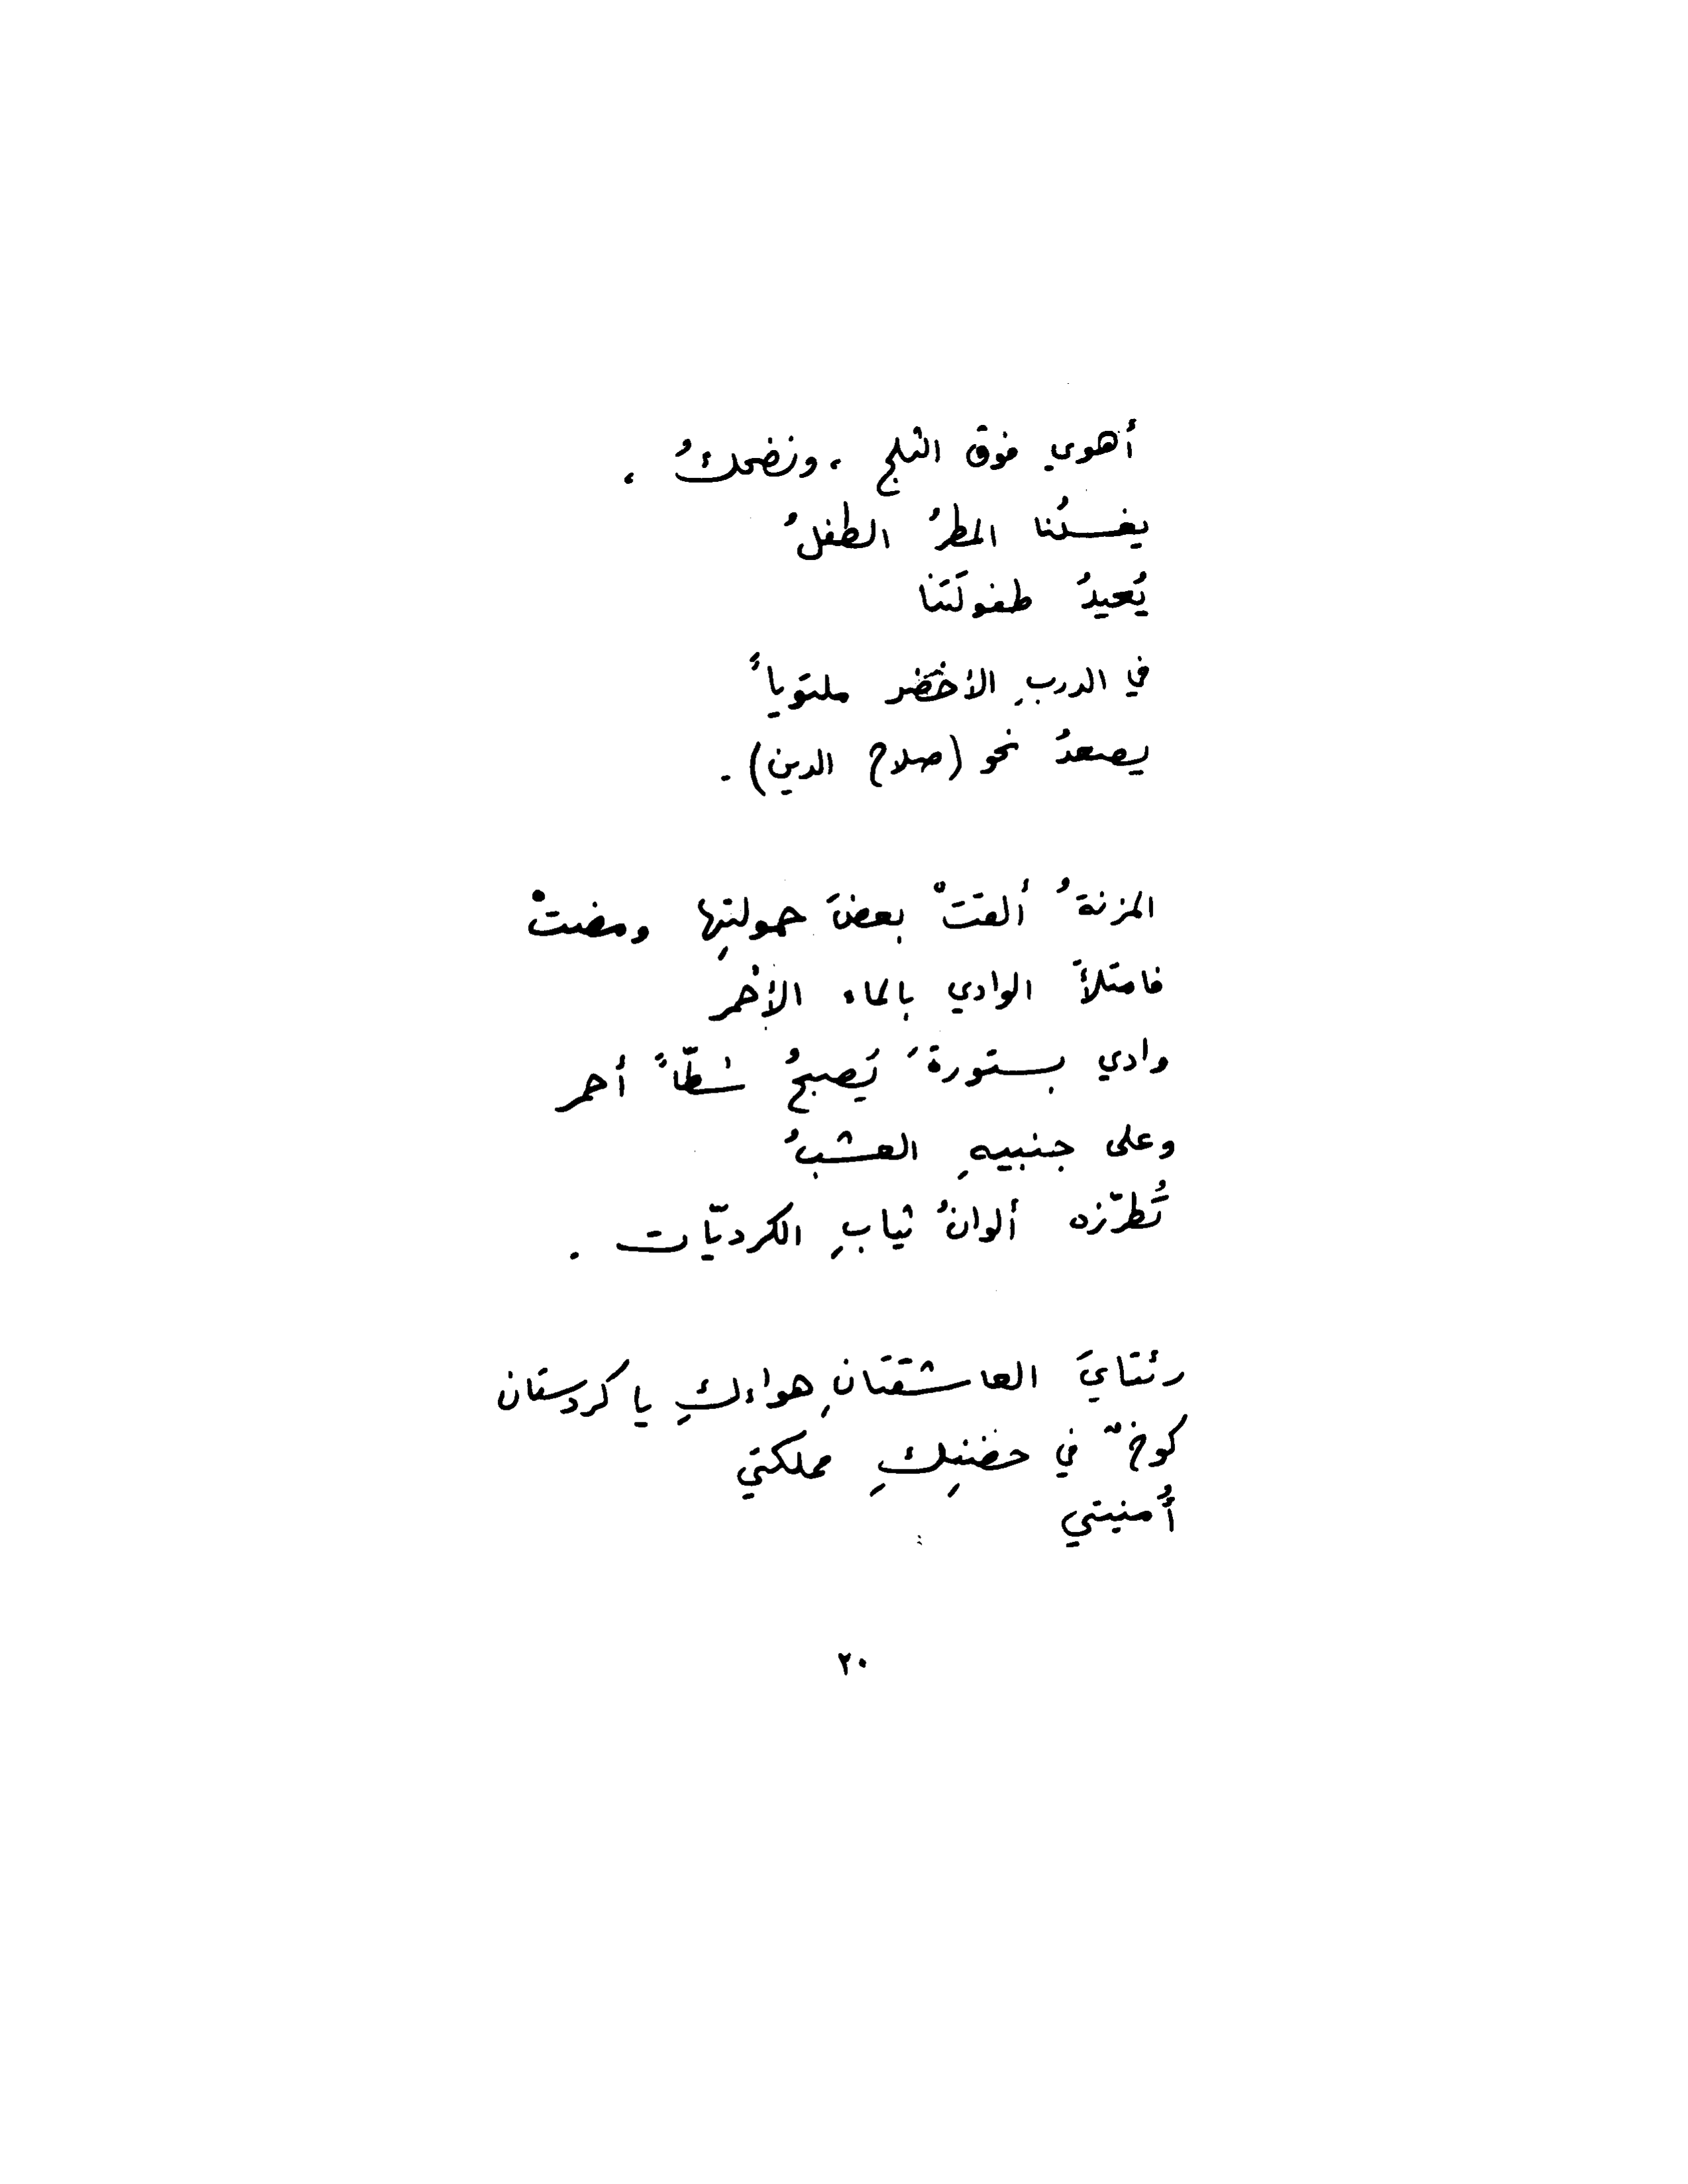 أهوي فوق الثلج ، ونضحكُ ،
يغسلُنا المطرُ الطفلُ
يُعيدُ طفولَتَنا
في الدربِ الأخضر ملتوياً
يصعدُ نحو (صلاح الدين) .
المزنةُ ألقتْ بعضَ حمولتِها ومضتْ
فامتلأَ الوادي بالماء الأحمر
وادي بستورةَ يَصبحُ شطّاً أحمر
وعلى جنبيهِ العشبُ
تُطرّزه ألوانُ ثيابِ الكرديّات .
رئتايَ العاشقتانِ هواءكِ يا كردستان
كوخٌ في حضنِكِ مملكتي
أُمنيتي
٢٠